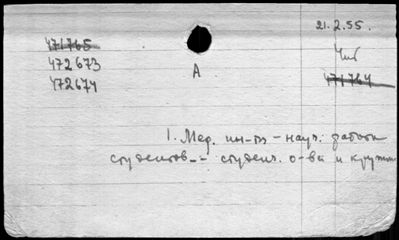 21.2.55.
471765
Чиб
472673
А
471764
472674
1. Мед. ин-ты - науч. работы
студентов - студенч. о-ва и кружки